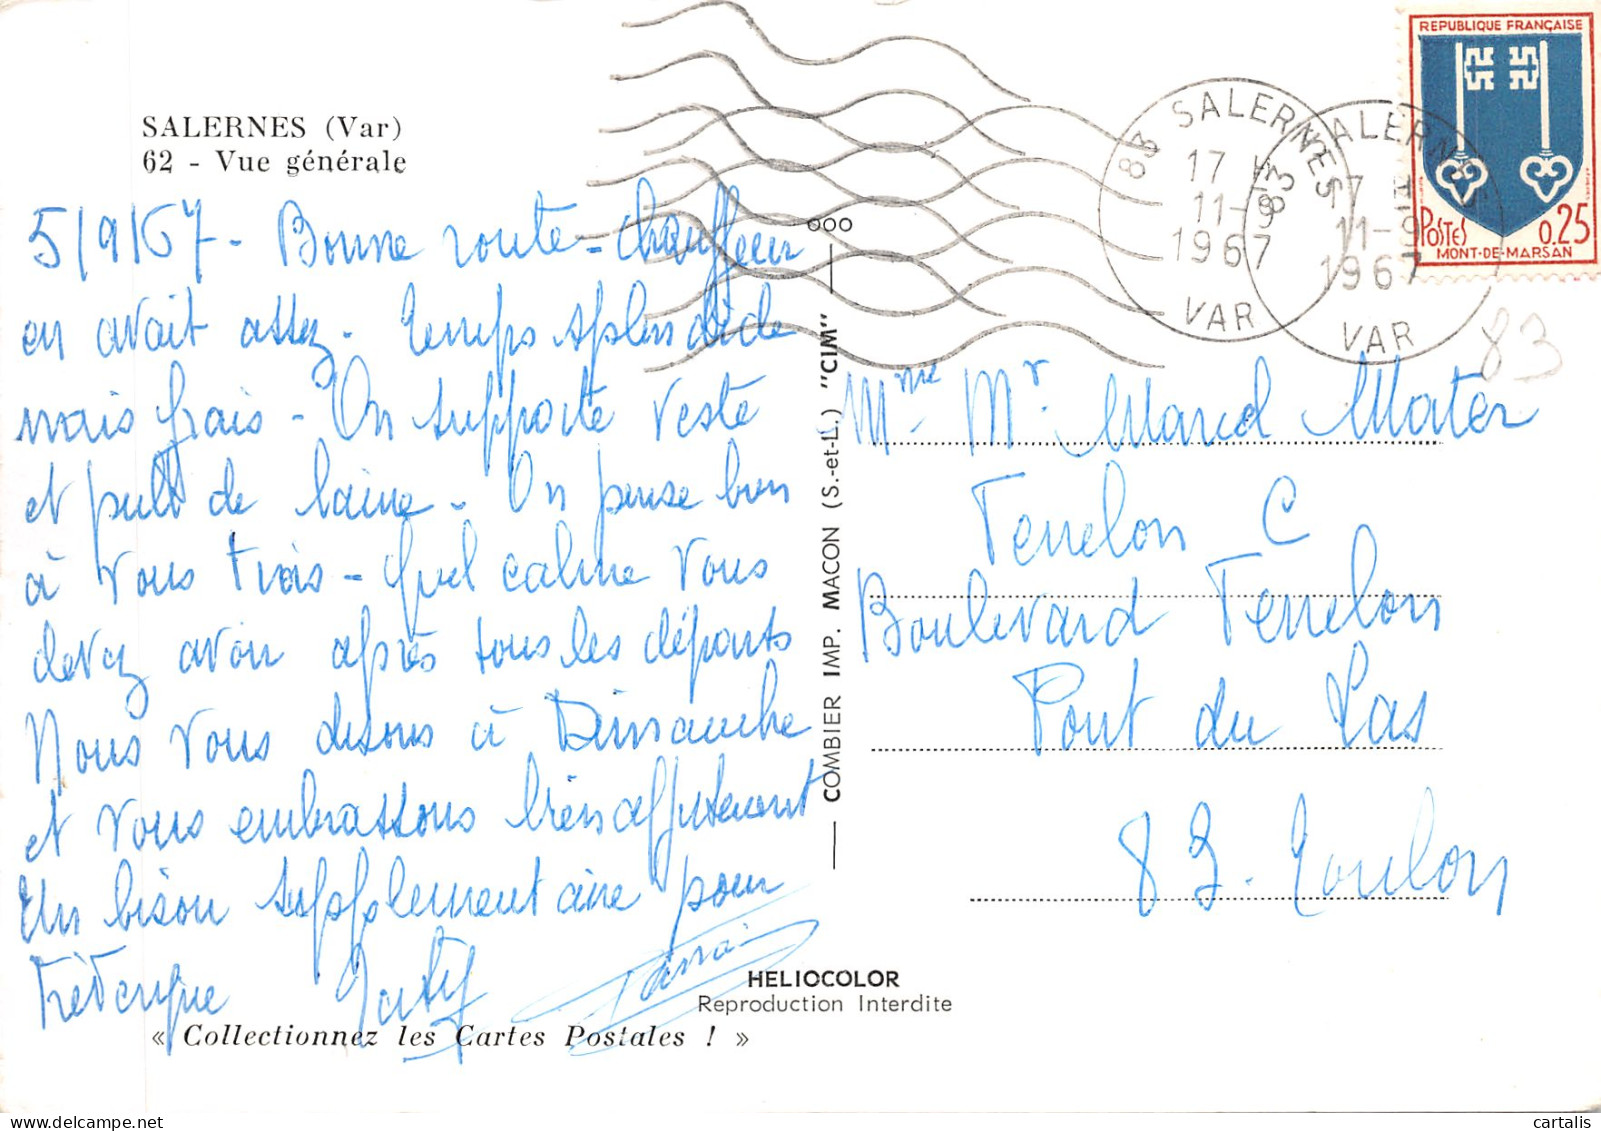 SALERNES (Var)
62 - Vue générale
5/9/67 - Bonne route - chauffeur
en avait assez. Temps splendide
mais frais - On supporte veste
et pull de laine - On pense bien
à vous trois - Quel calme vous
devez avoir après tous les départs
Nous vous disons à Dimanche
et vous embrassons bien affectueusement
Un bisou supplémentaire pour
Frédérique
« Collectionnez les Cartes Postales ! »
COMBIER IMP. MACON (S.-et-L.) "CIM"
HELIOCOLOR
Reproduction Interdite
83 SALERNES
17 H
11-9
1967
VAR
83 SALERNES
17 H
11-9
1967
VAR
REPUBLIQUE FRANÇAISE
POSTES
0.25
MONT-DE-MARSAN
83
Mme Mr. Marcel Mater
Terrelon C
Boulevard Terrelon
Pont du Las
83. Toulon